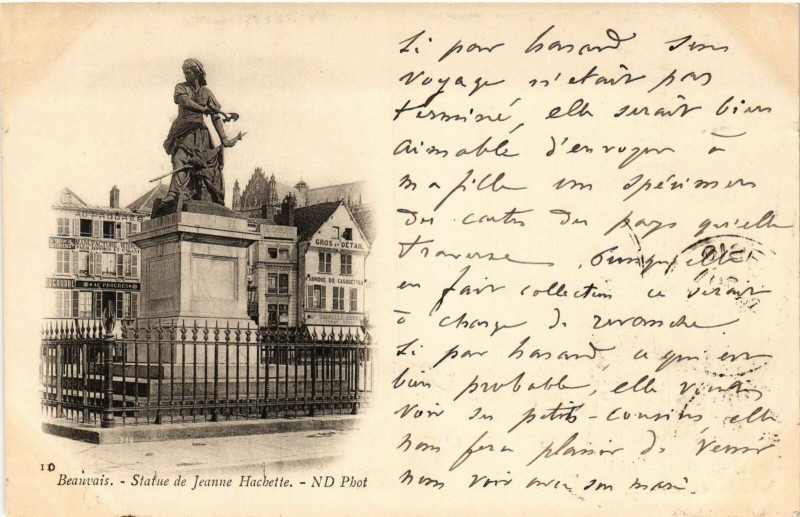 Si par hasard son
voyage n'etait pas
terminé, elle serait bien
aimable d'envoyer à
ma fille un spécimen
des cartes des pays qu'elle
traverse, puisqu'elle
en fait collection ce serait
à charge de revanche.
Si par hasard, ce qui est
bien probable, elle venait
voir ses petits-cousins elle
nous fera plaisir de venir
nous voir avec son mari.
AU PROGRÈS
GROS ET DÉTAIL
FABRIQUE DE CASQUETTES
AU PROGRÈS
10
Beauvais. - Statue de Jeanne Hachette. - ND Phot